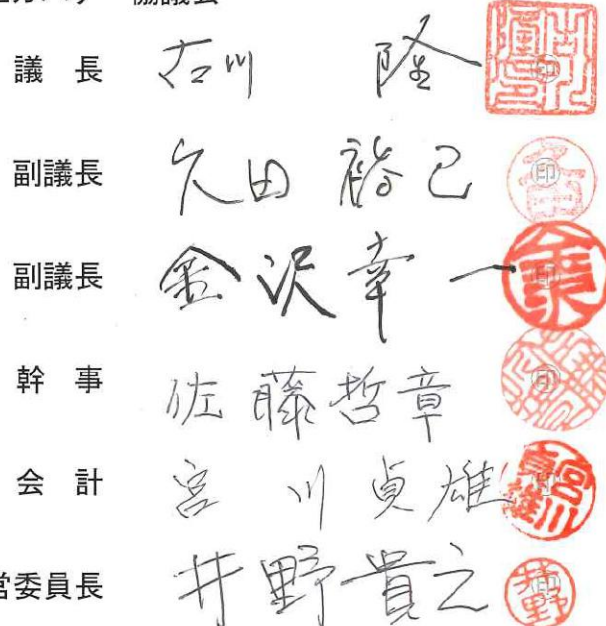 協議会
議長 古川 隆 印
副議長 久田 裕己 印
副議長 金沢幸一 印
幹事 佐藤哲章 印
会計 宮川貞雄 印
営委員長 井野貴之 印